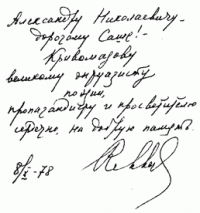 Александру Николаевичу –
дорогому Саше! –
Кривомазову
великому энтузиасту
поэзии,
пропагандисту и просветителю
сердечно, на добрую память.
8/X – 78